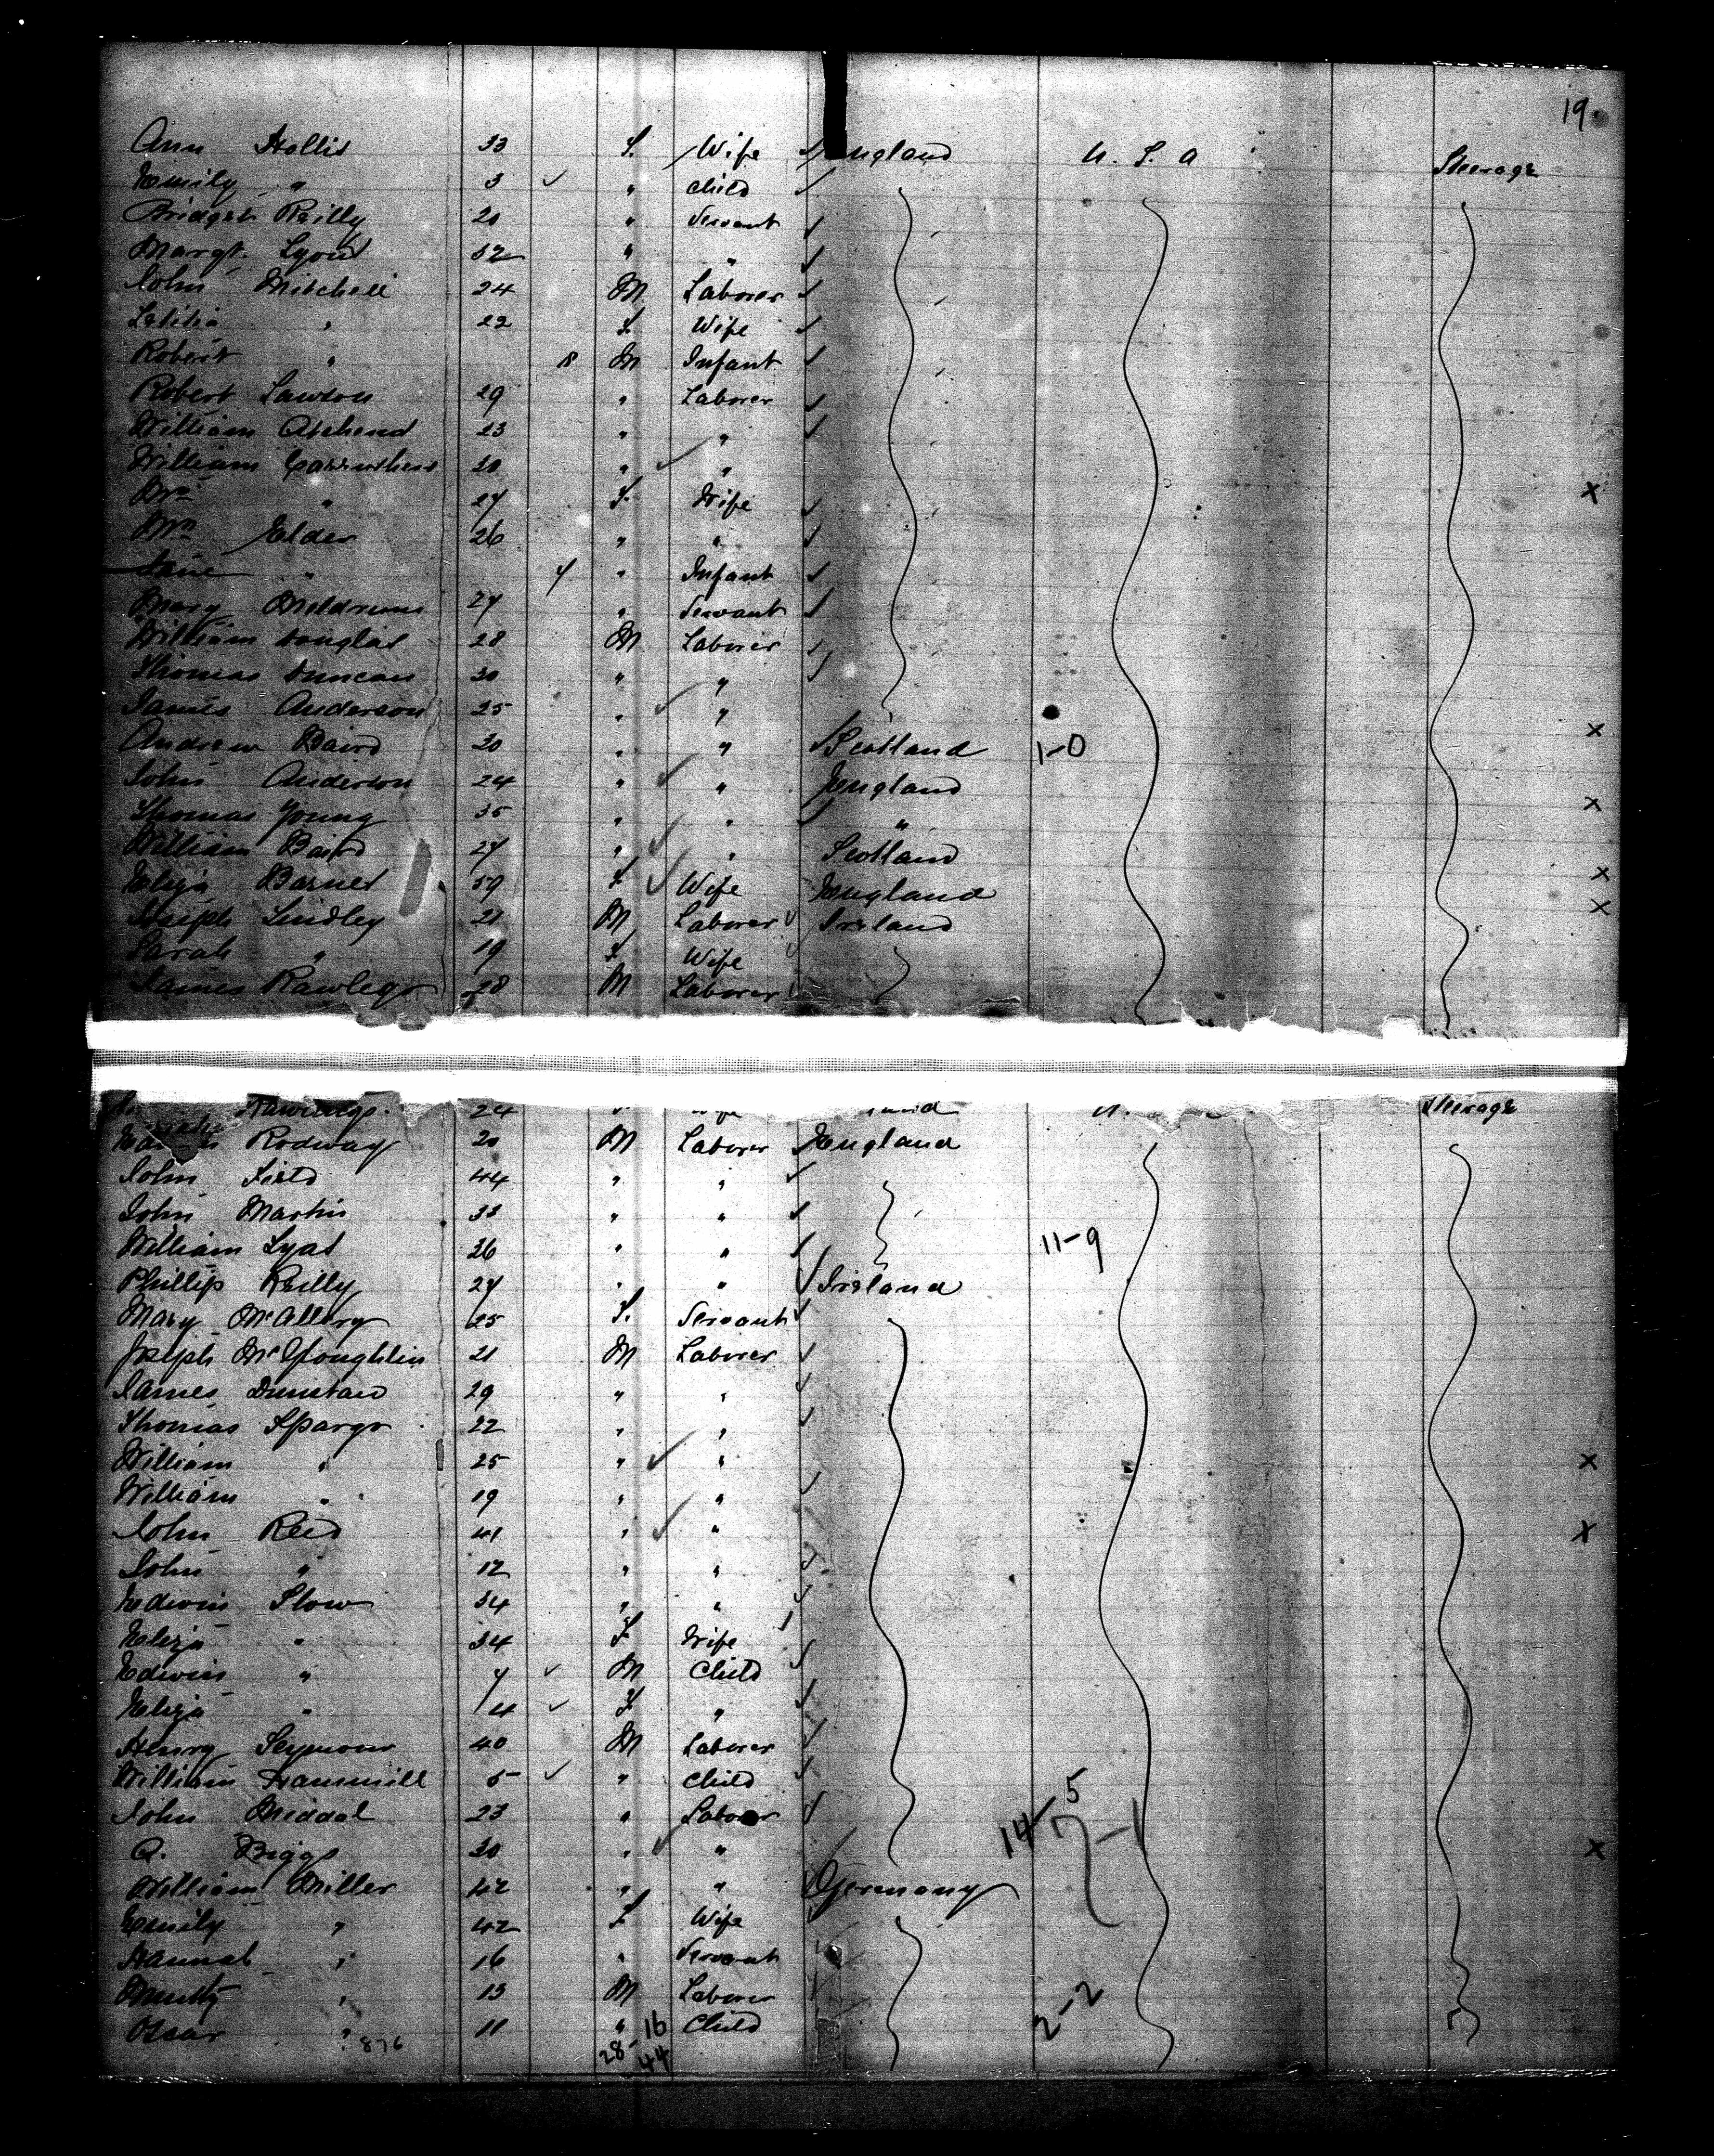 19.
Ann Hollis 33 F. Wife England U. S. A Steerage
Emily " 3 " Child
Bridget Reilly 20 " Servant
Margt. Lyons 52 " "
John Mitchell 24 M Laborer
Letitia " 22 F. Wife
Robert " 8 M Infant
Robert Lawson 29 " Laborer
William 23 " "
William Carruthers 30 " "
Mrs " 27 F. Wife
Mrs Elder 26 " "
Jane " 4 " Infant
Mary Meldrum 27 " Servant
William Douglas 28 M Laborer
Thomas Duncan 30 " "
James Anderson 25 " " X
Andrew Baird 30 " " Scotland 1-0
John Anderson 24 " " England X
Thomas Young 35 " " "
William Baird 27 " " Scotland X
Eliza Barnes 59 F Wife England X
Joseph Lindley 21 M Laborer Ireland
Sarah " 19 F Wife
James Rawlings 28 M Laborer
Rawlings 24 Wife Steerage
Rodway 20 M Laborer England
John Field 44 " "
John Martin 33 " "
William Lyas 26 " " 11-9
Phillip Reilly 27 " " Ireland
Mary 25 F. Servant
Joseph McGloughlin 21 M Laborer
James Dunstan 29 " "
Thomas Spargo 22 " "
William " 25 " " X
William " 19 " "
John Reed 41 " " X
John " 12 " "
Edwin Slow 34 " "
Eliza " 34 F Wife
Edwin " 7 M Child
Eliza " 4 F "
Henry Seymour 40 M Laborer
William Trammill 5 " Child
John Meddal 23 " Laborer 14-5
A. Biggs 30 " " 7-1 X
William Miller 42 " " Germany
Emily " 42 F Wife
Hannah " 16 " Servant
" 13 M Laborer 2-2
Oscar " 11 " Child
876 28-16
44